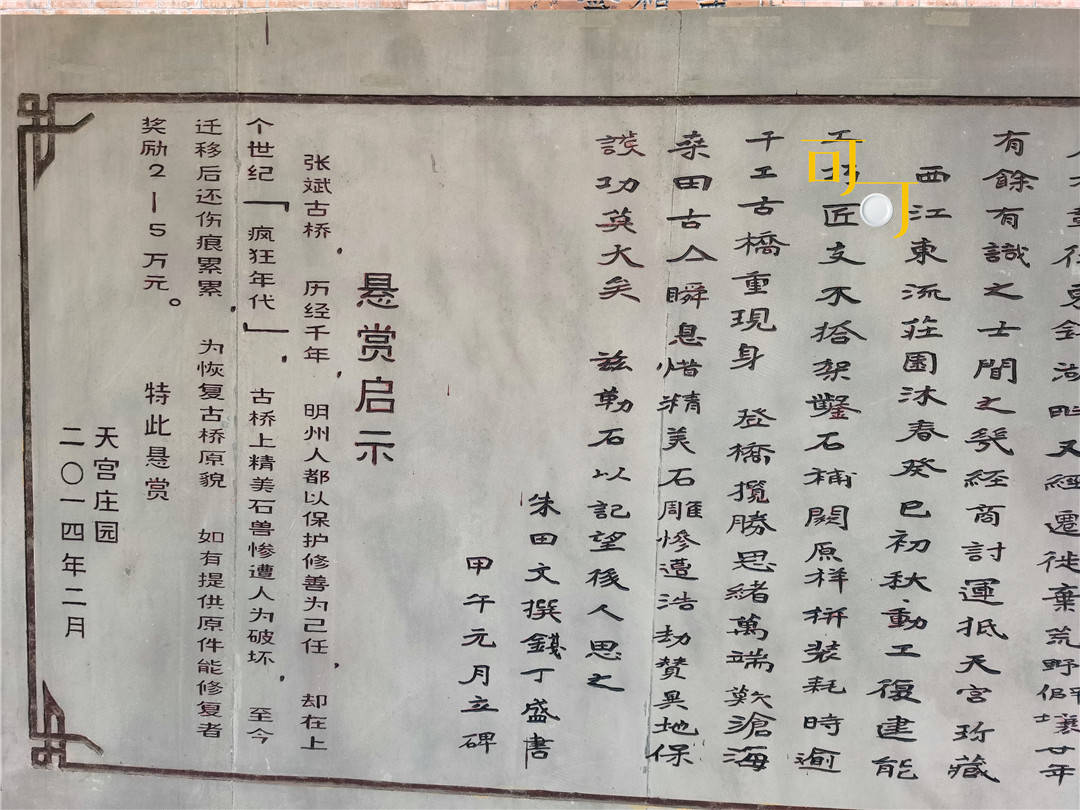 東錢湖畔又經遷徙棄荒野 壤廿年
有餘有識之士聞之幾經商討運抵天宮珎藏
西江東流莊園沐春癸巳初秋動工復建能
匠支木搭架鑿石補闕原样拼装耗時逾
千工古橋重現身 登橋攬勝思緒萬端歎滄海
桑田古今瞬息惜精美石雕慘遭浩劫贊異地保
護功莫大矣 兹勒石以記望後人思之
朱田文撰錢丁盛書
甲午元月立碑
悬赏启示
张斌古桥，历经千年，明州人都以保护修善为己任，却在上
个世纪「疯狂年代」，古桥上精美石兽惨遭人为破坏，至今
迁移后还伤痕累累，为恢复古桥原貌 如有提供原件能修复者
奖励2—5万元。 特此悬赏
天宫庄园
二〇一四年二月